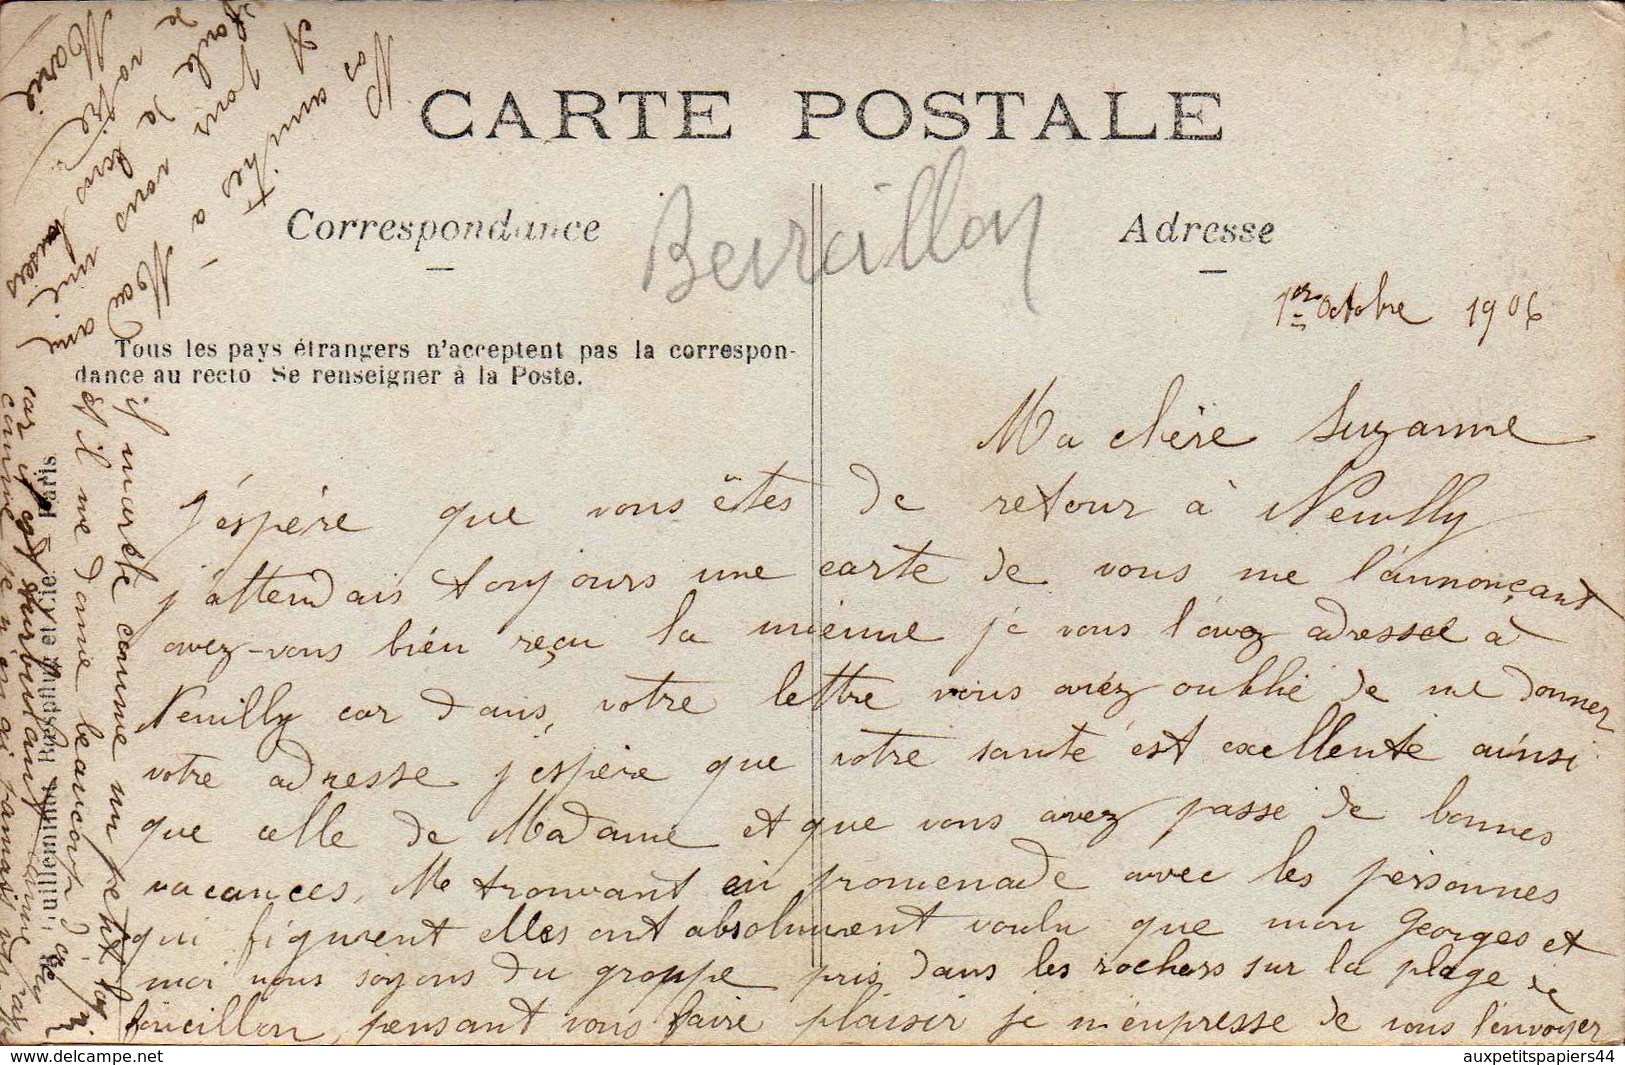 CARTE POSTALE
Correspondance
Adresse
Tous les pays étrangers n'acceptent pas la correspon-
dance au recto Se renseigner à la Poste.
1er Octobre 1906
Ma chère Suzanne
J'éspère que vous êtes de retour à Neuilly
j'attendais toujours une carte de vous me l'annonçant
avez-vous bien reçu la mienne je vous l'avez adressée à
Neuilly car dans votre lettre vous aviez oublié de me donner
votre adresse j'espère que votre santé est excellente ainsi
que celle de Madame et que vous avez passé de bonnes
vacances. Me trouvant en promenade avec les personnes
qui figurent elles ont absolument voulu que mon Georges et
moi nous soyons du groupe pris dans les rochers sur la plage de
pensant vous faire plaisir je m'empresse de vous l'envoyer
il marche comme un petit
et il me donne beaucoup
car il est
comme je n'en ai jamais
Nos amitiés
et à
vous
foule de bons baisers
de votre
Marie
R. Guilleminot, Bœspflug et Cie. Paris
auxpetitspapiers44